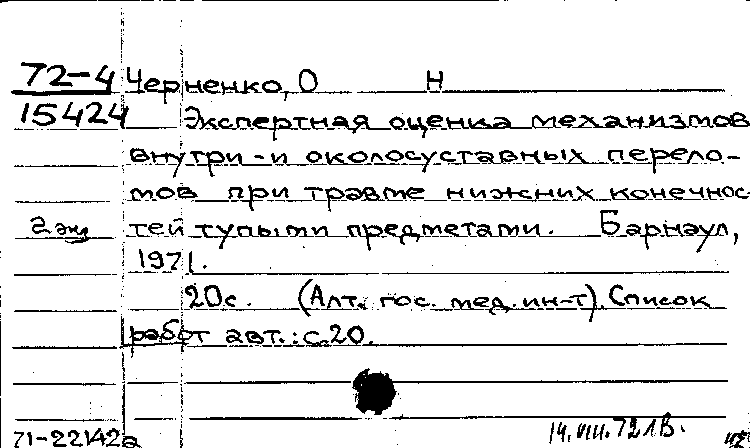 72-4 Черненко, О Н
15424 Экспертная оценка механизмов
внутри- и околосуставных перело-
мов при травме нижних конечнос
2 экз тей тупыми предметами. Барнаул,
1971.
20с. (Алт. гос. мед. ин-т). Список
работ авт.: с.20.
71-22142а 14.VIII.72 1В.